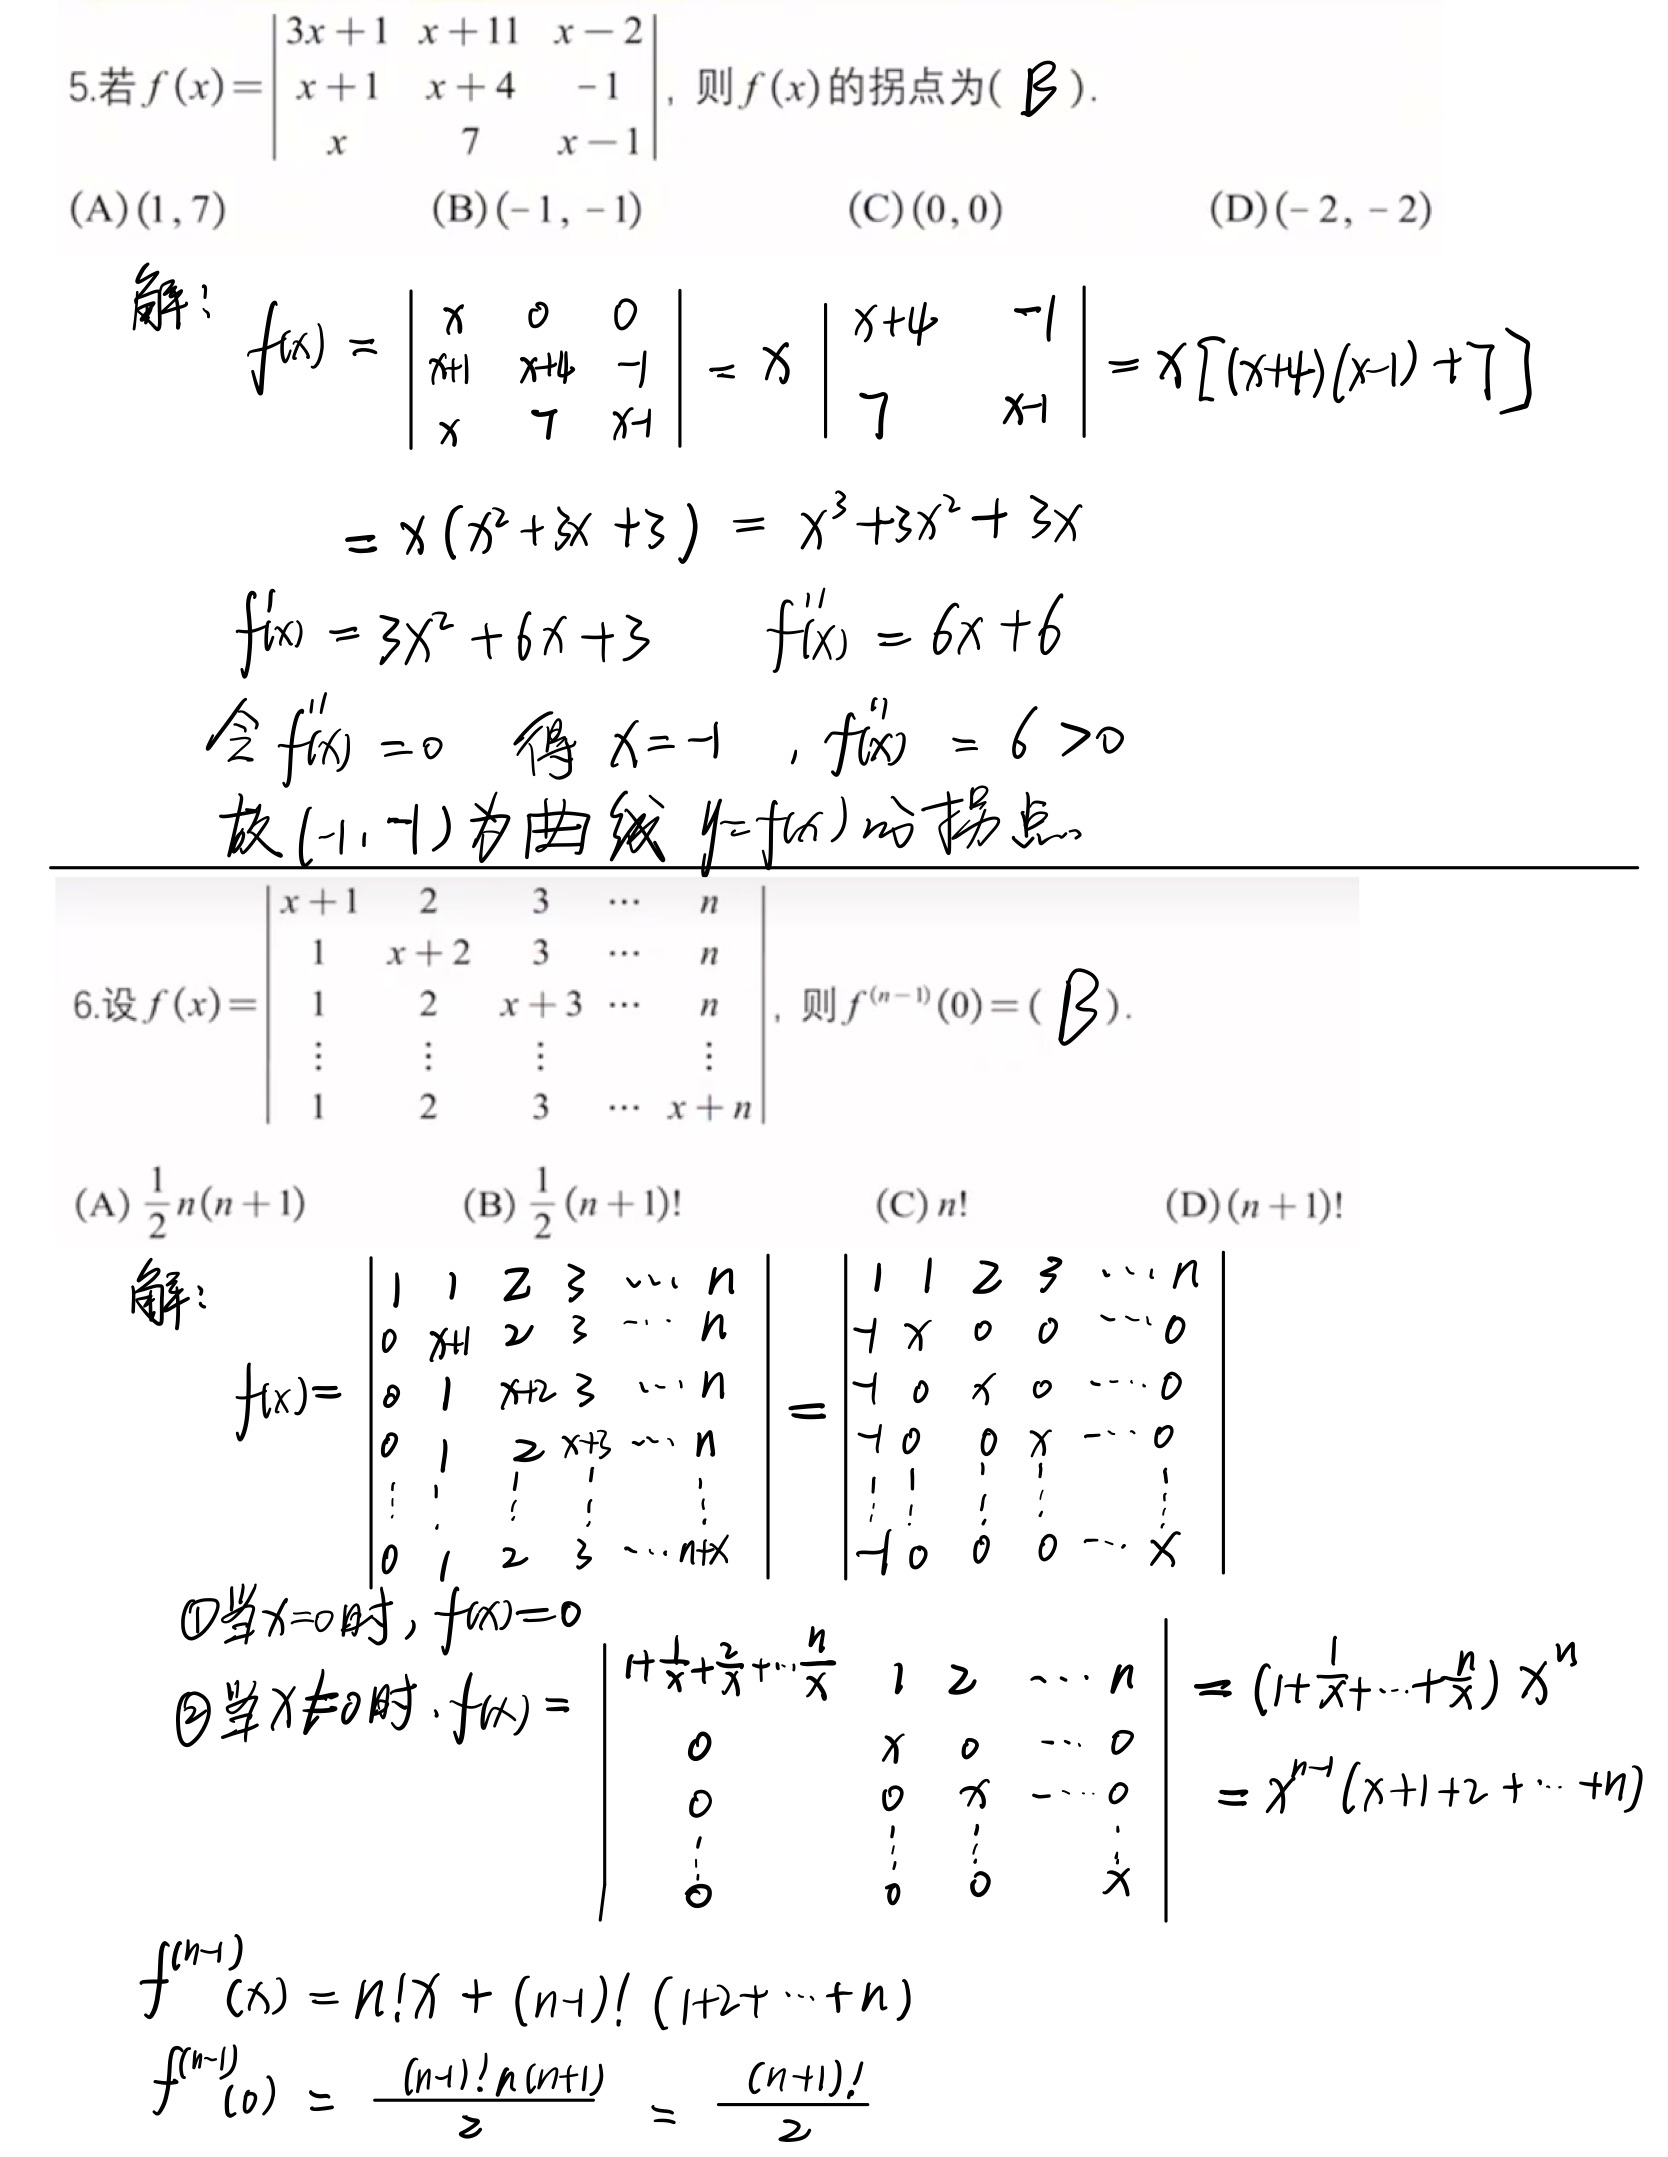 5.若 f(x)= | 3x+1 x+11 x−2 |
| x+1 x+4 −1 | , 则 f(x) 的拐点为( B ).
| x 7 x−1 |
(A)(1, 7) (B)(−1, −1) (C)(0, 0) (D)(−2, −2)
解:
f(x) = | x 0 0 |
| x+1 x+4 −1 |
| x 7 x−1 | = x | x+4 −1 |
| 7 x−1 | = x[(x+4)(x−1)+7]
= x(x²+3x+3) = x³+3x²+3x
f'(x) = 3x²+6x+3 f''(x) = 6x+6
令 f''(x) = 0 得 x=−1 , f'''(x) = 6 >0
故(−1, −1)为曲线 y=f(x)的拐点.
6.设 f(x)= | x+1 2 3 ⋯ n |
| 1 x+2 3 ⋯ n |
| 1 2 x+3 ⋯ n | , 则 f⁽ⁿ⁻¹⁾(0)=( B ).
| ⋮ ⋮ ⋮ ⋮ |
| 1 2 3 ⋯ x+n |
(A) 1/2 n(n+1) (B) 1/2 (n+1)! (C) n! (D)(n+1)!
解:
f(x)= | 1 1 2 3 ⋯ n |
| 0 x+1 2 3 ⋯ n |
| 0 1 x+2 3 ⋯ n |
| 0 1 2 x+3 ⋯ n |
| ⋮ ⋮ ⋮ ⋮ ⋮ |
| 0 1 2 3 ⋯ n+x |
= | 1 1 2 3 ⋯ n |
| −1 x 0 0 ⋯ 0 |
| −1 0 x 0 ⋯ 0 |
| −1 0 0 x ⋯ 0 |
| ⋮ ⋮ ⋮ ⋮ ⋮ |
| −1 0 0 0 ⋯ x |
①当x=0时, f(x)=0
②当x≠0时, f(x) = | 1+1/x+2/x+⋯n/x 1 2 ⋯ n |
| 0 x 0 ⋯ 0 |
| 0 0 x ⋯ 0 |
| ⋮ ⋮ ⋮ ⋮ |
| 0 0 0 x |
= (1+1/x+⋯+n/x) xⁿ
= xⁿ⁻¹(x+1+2+⋯+n)
f⁽ⁿ⁻¹⁾(x) = n!x + (n−1)! (1+2+⋯+n)
f⁽ⁿ⁻¹⁾(0) = (n−1)! n(n+1)/2 = (n+1)!/2